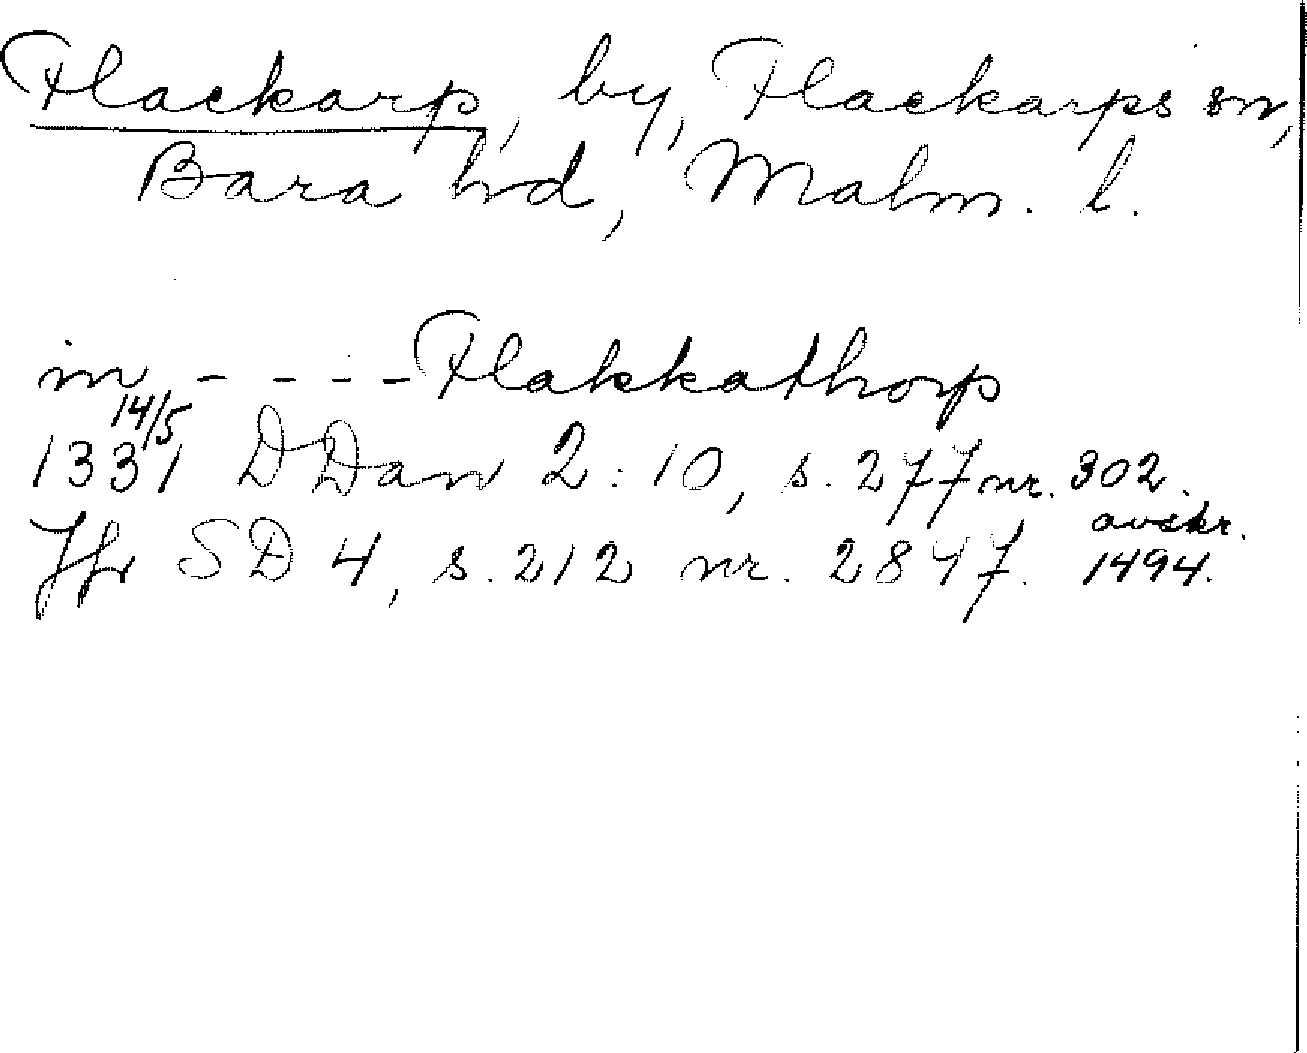 Flackarp, by, Flackarps sn,
Bara hd, Malm. l.
in - - - - Flakkathorp
14/5
1331 DDan 2:10, s. 277 nr. 302.
avskr.
Jfr SD 4, s. 212 nr. 2847. 1494.